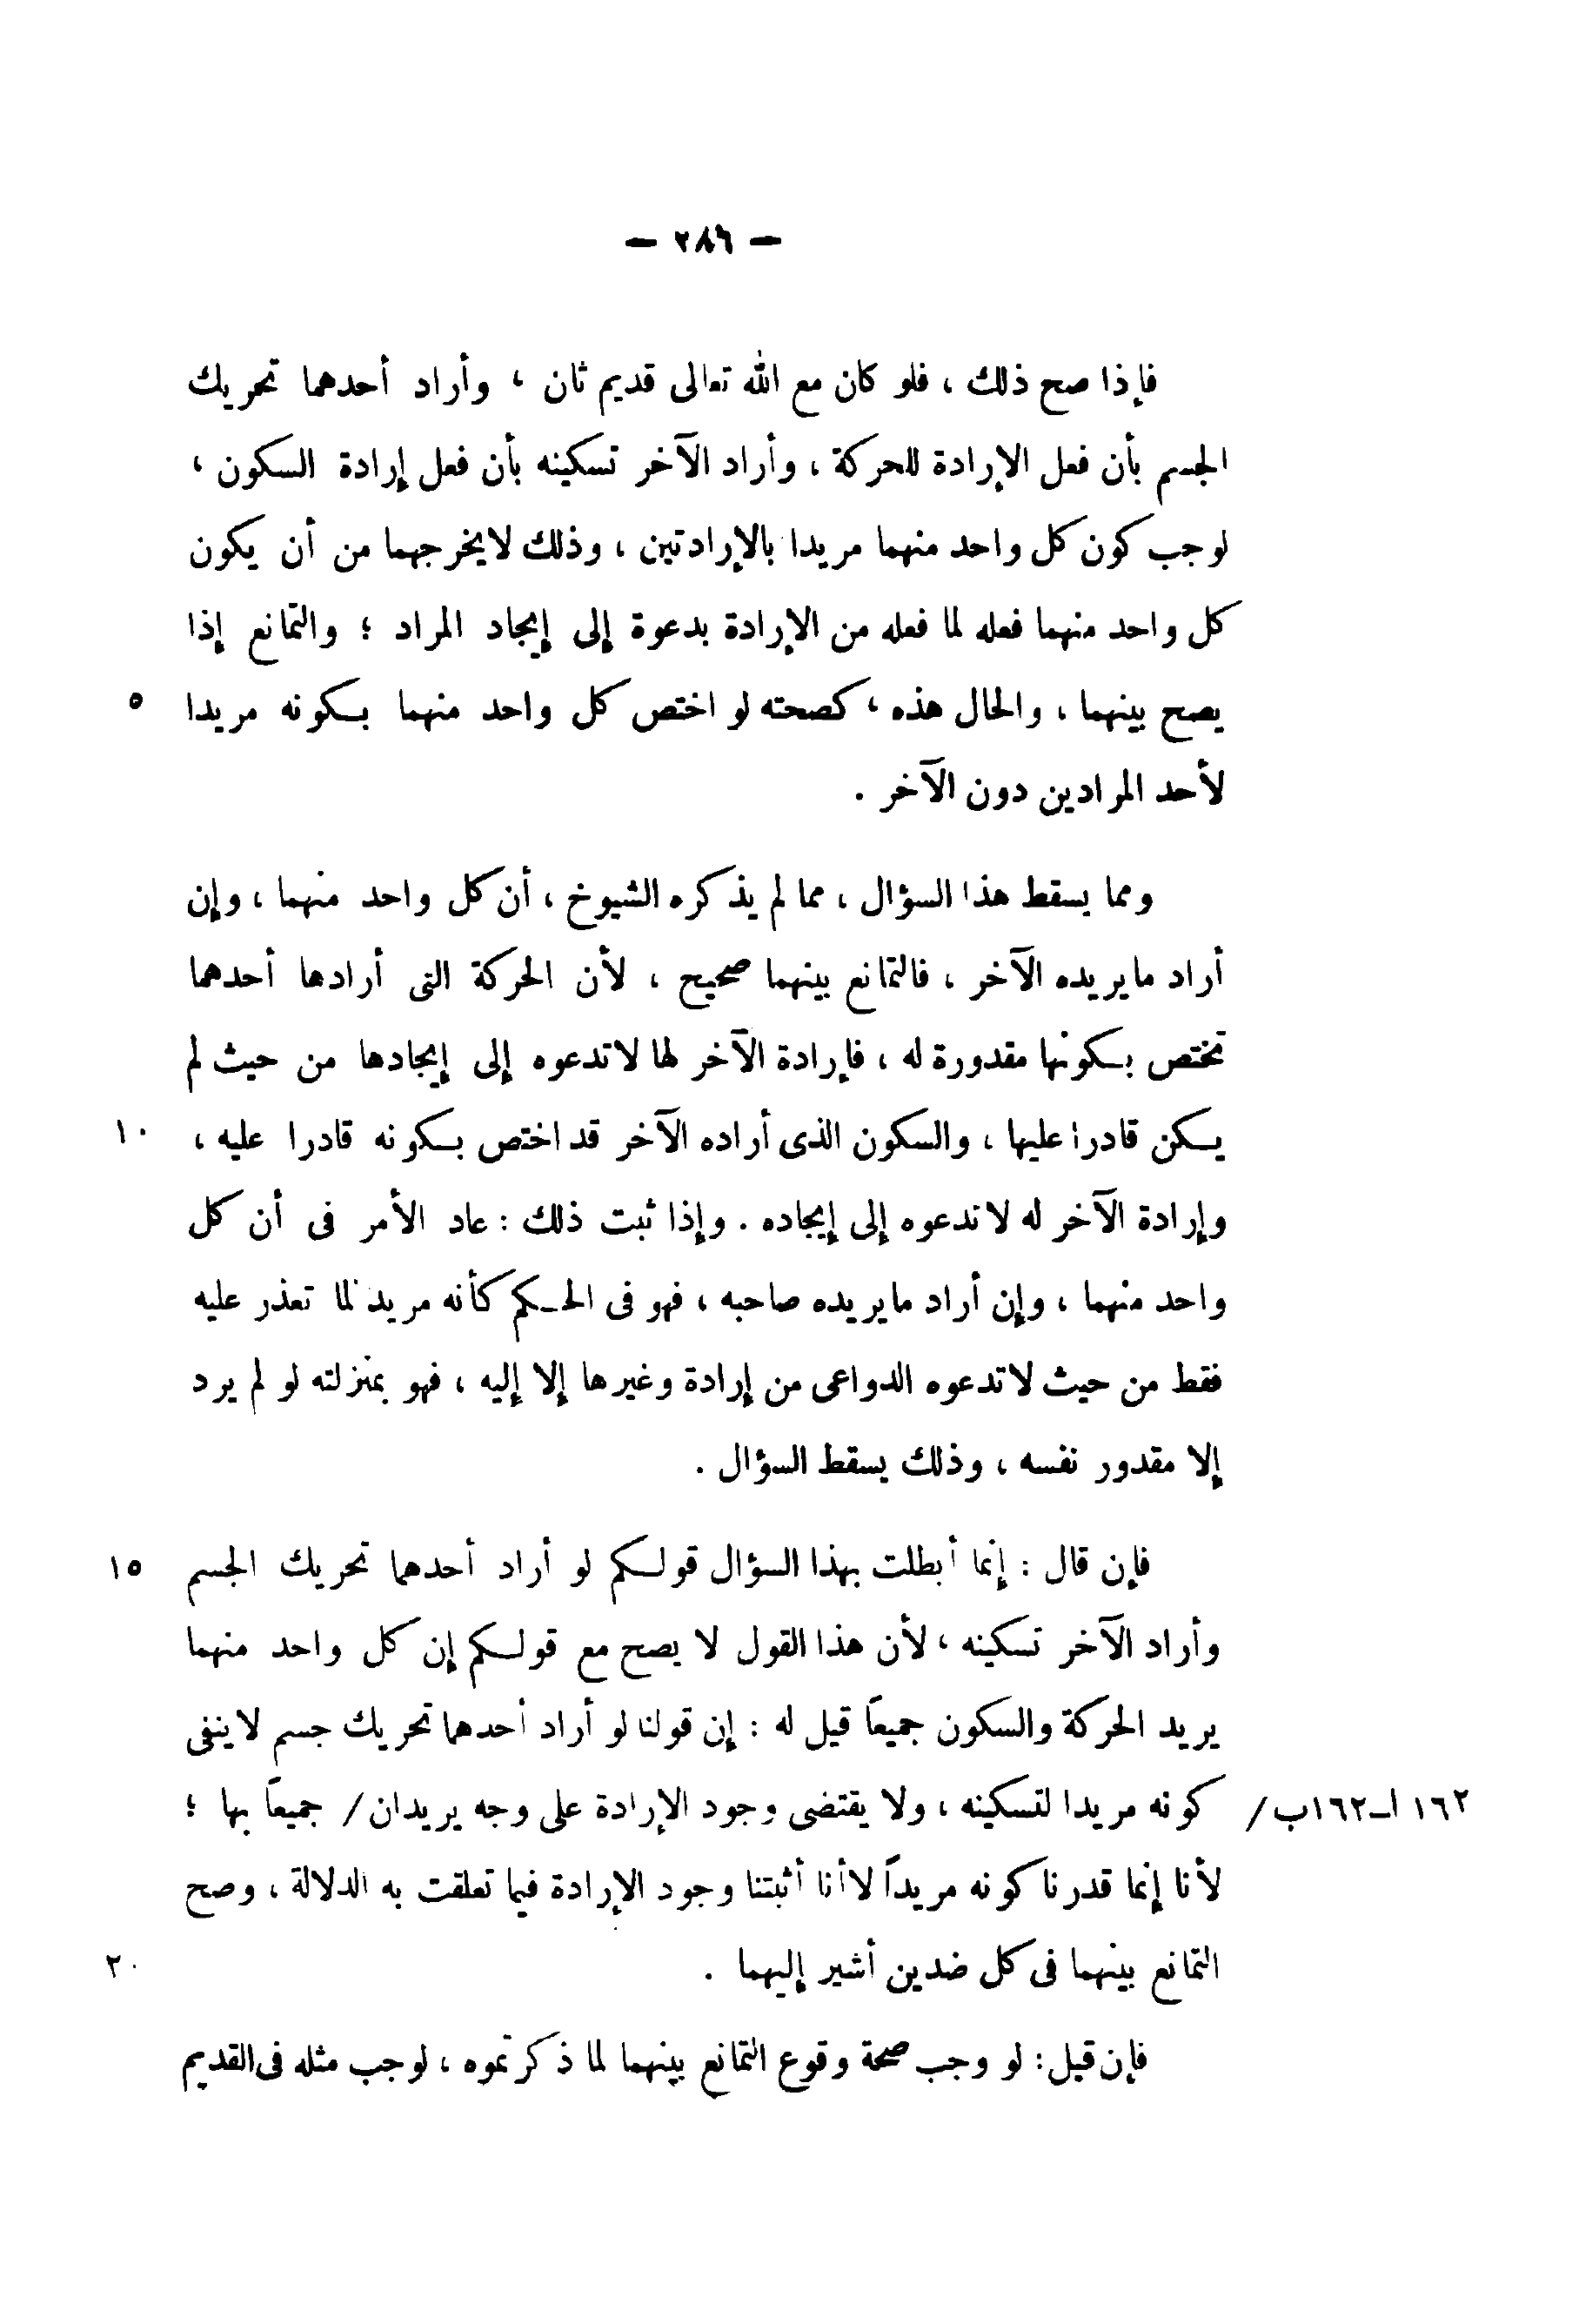 — ٢٨٦ —
فإذا صح ذلك ، فلو كان مع الله تعالى قديم ثان ، وأراد أحدهما تحريك
الجسم بأن فعل الإرادة للحركة ، وأراد الآخر تسكينه بأن فعل إرادة السكون ،
لوجب كون كل واحد منهما مريدا بالإرادتين ، وذلك لا يخرجهما من أن يكون
كل واحد منهما فعله لما فعله من الإرادة بدعوة إلى إيجاد المراد ؛ والتمانع إذا
يصح بينهما ، والحال هذه ، كصحته لو اختص كل واحد منهما بكونه مريدا ٥
لأحد المرادين دون الآخر .
ومما يسقط هذا السؤال ، مما لم يذكره الشيوخ ، أن كل واحد منهما ، وإن
أراد ما يريده الآخر ، فالتمانع بينهما صحيح ، لأن الحركة التى أرادها أحدهما
تختص بكونها مقدورة له ، فإرادة الآخر لها لا تدعوه إلى إيجادها من حيث لم
يكن قادرا عليها ، والسكون الذى أراده الآخر قد اختص بكونه قادرا عليه ، ١٠
وإرادة الآخر له لا تدعوه إلى إيجاده . وإذا ثبت ذلك : عاد الأمر فى أن كل
واحد منهما ، وإن أراد ما يريده صاحبه ، فهو فى الحكم كأنه مريد لما تعذر عليه
فقط من حيث لا تدعوه الدواعى من إرادة وغيرها إلا إليه ، فهو بمنزلته لو لم يرد
إلا مقدور نفسه ، وذلك يسقط السؤال .
فإن قال : إنما أبطلت بهذا السؤال قولكم لو أراد أحدهما تحريك الجسم ١٥
وأراد الآخر تسكينه ، لأن هذا القول لا يصح مع قولكم إن كل واحد منهما
يريد الحركة والسكون جميعاً قيل له : إن قولنا لو أراد أحدهما تحريك جسم لا ينفى
١٦٢ ا—١٦٢ب / كونه مريدا لتسكينه ، ولا يقتضى وجود الإرادة على وجه يريدان / جميعاً بها ؛
لأنا إنما قدرنا كونه مريداً لا أنا أثبتنا وجود الإرادة فيما تعلقت به الدلالة ، وصح
التمانع بينهما فى كل ضدين أشير إليهما . ٢٠
فإن قيل : لو وجب صحة وقوع التمانع بينهما لما ذكرتموه ، لوجب مثله فى القديم